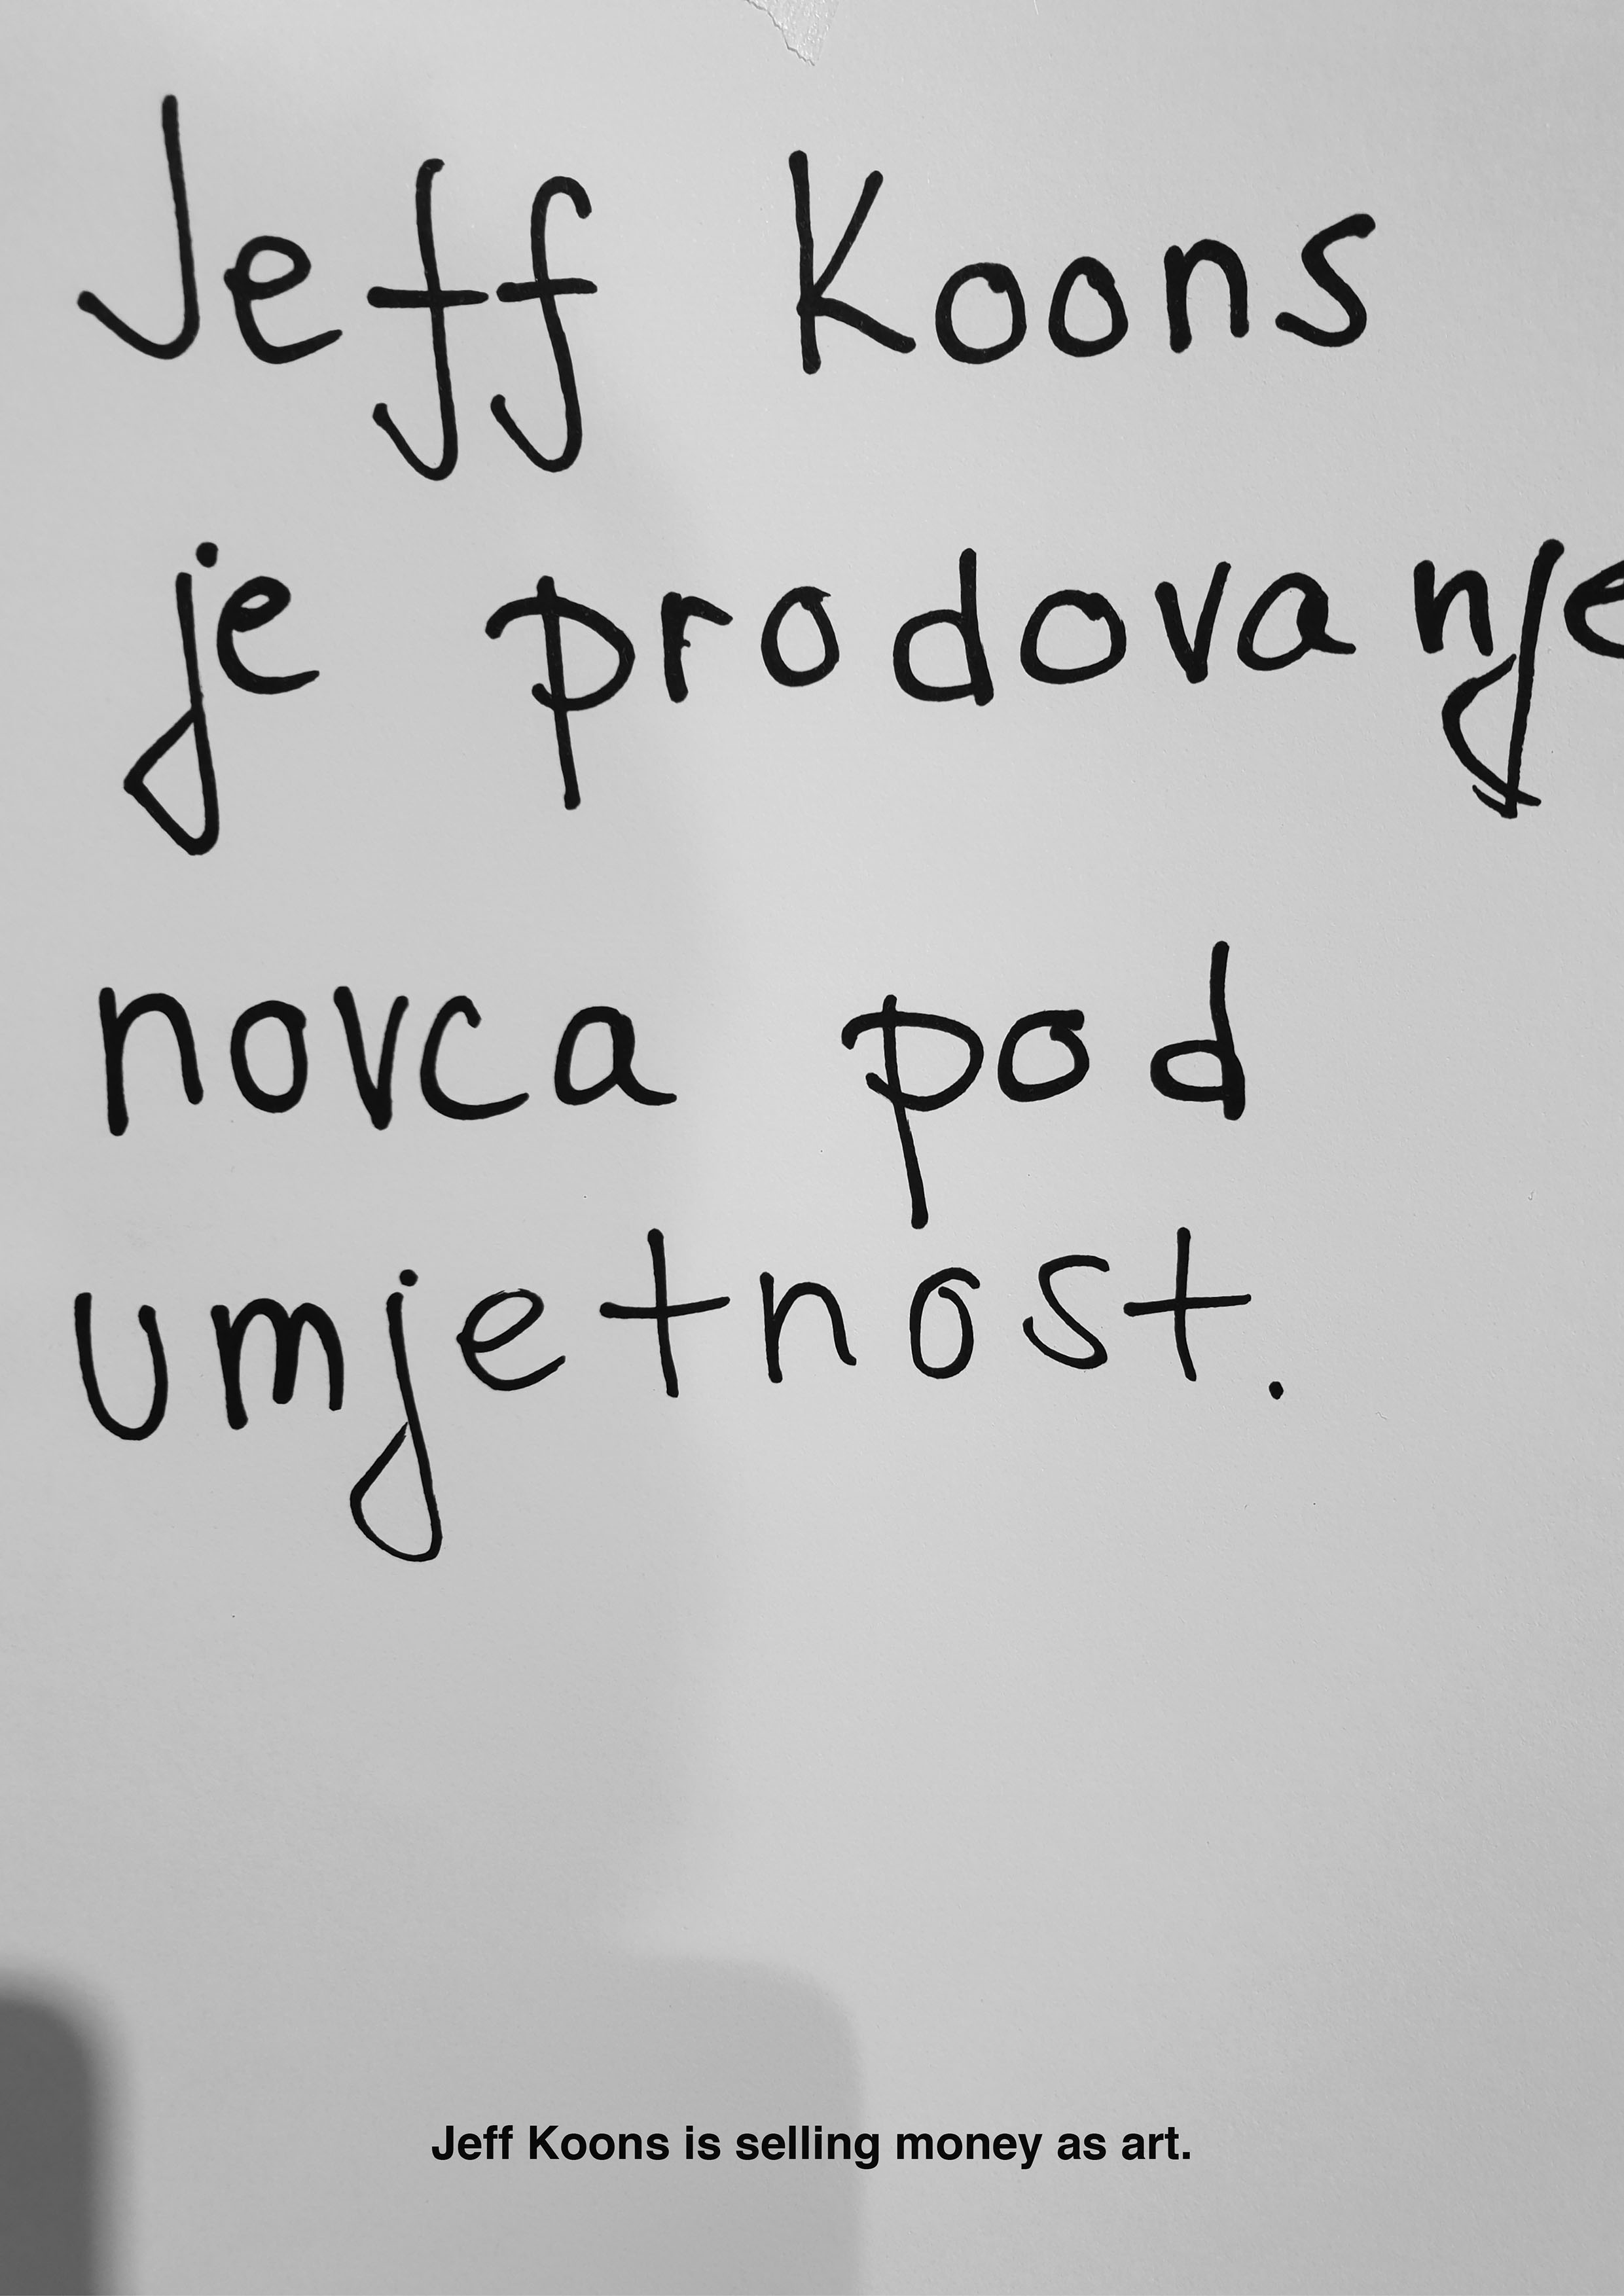 Jeff Koons
je prodovanje
novca pod
umjetnost.
Jeff Koons is selling money as art.